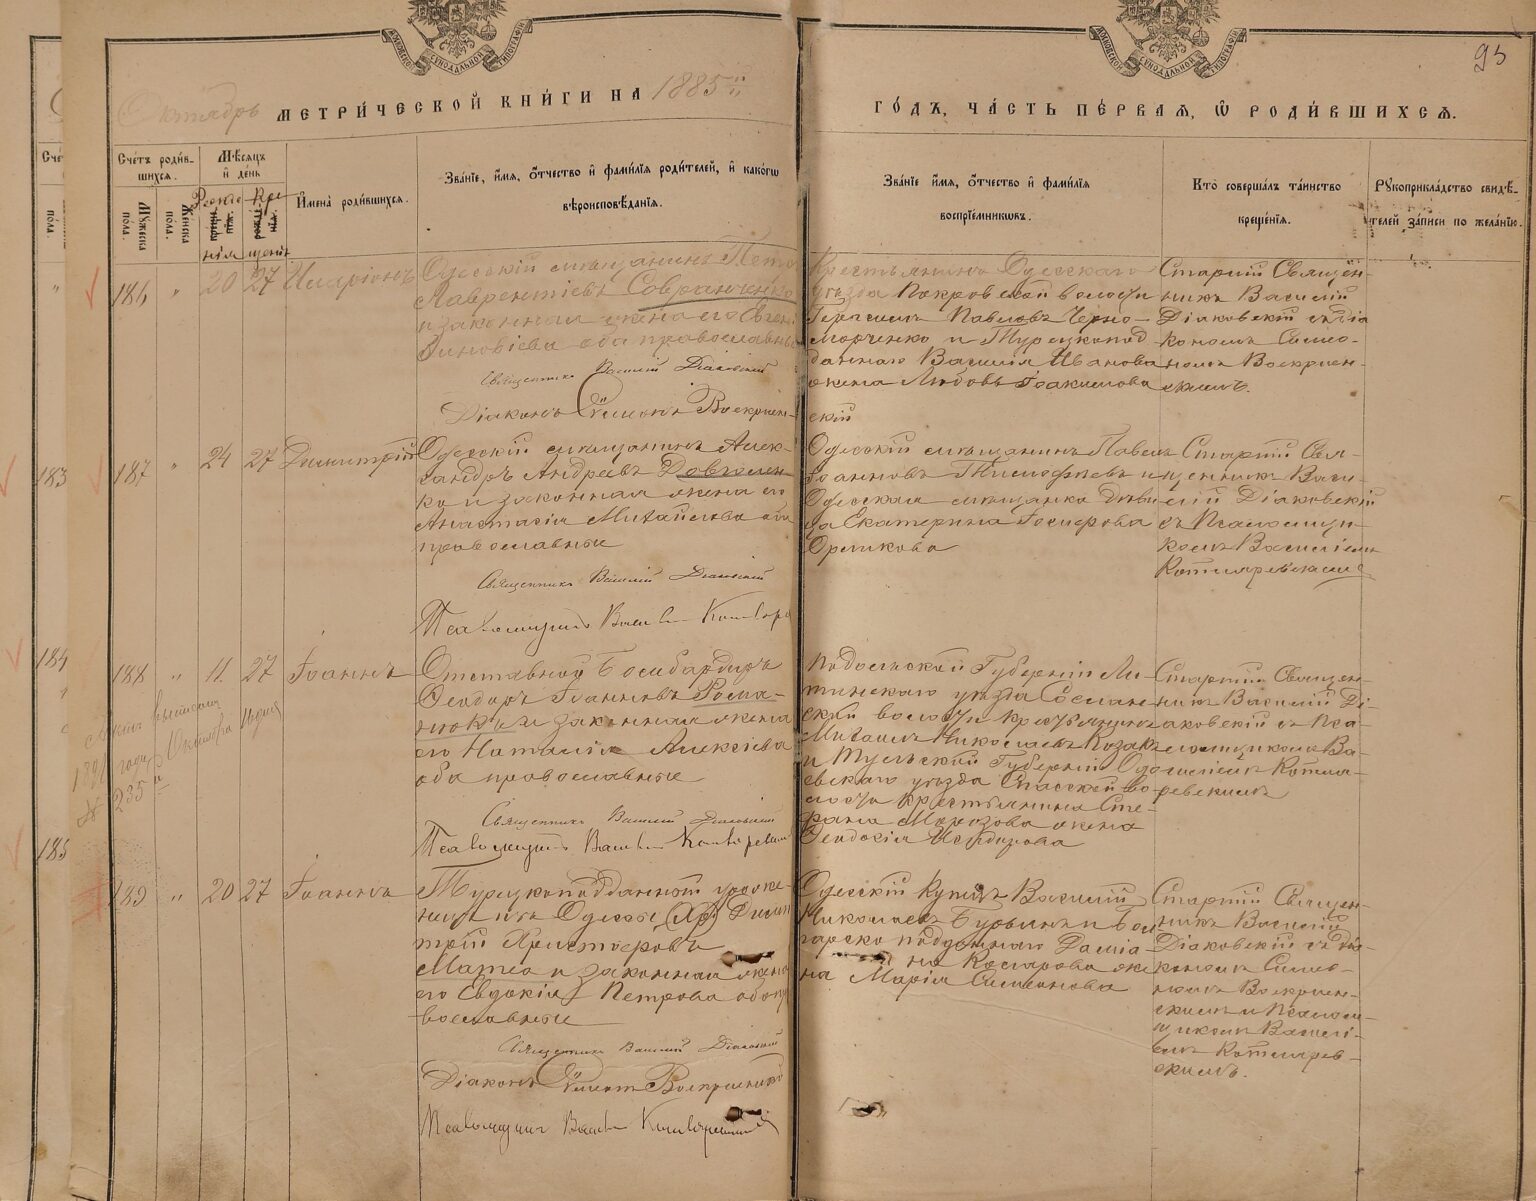 Октябрь МЕТРИ́ЧЕСКОЙ КНИ́ГИ НА 1885й
ГО́ДЪ, ЧА́СТЬ ПЕ́РВАЯ, Ѿ РОДИ́ВШИХСЯ.
95
Сче́тъ роди́в-
шихся.
Мужеска по́ла.
Женска по́ла.
Мѣ́сяцъ
и҆ де́нь
И҆мена̀ роди́вшихся.
Зва́нїе, и҆́мя, ѻ҆́тчество и҆ фами́лїя роди́телей, и҆ како́гѡ
вѣроисповѣ́данїя.
Зва́нїе и҆́мя, ѻ҆́тчество и҆ фами́лїя
воспрїе́мниковъ.
Кто̀ соверша́лъ та́инство
креще́нїя.
Рꙋкоприкла́дство свидѣ́-
телей за́писи по жела́нїю.
186 " 20 27 Иларіонъ
Одесскій мѣщанинъ Петръ
Лаврентіевъ Совранченко
и законная жена его
Зиновіева оба православные
Священникъ Василій Діаковскій
Діаконъ Симеонъ Воскресен-
скій
Крестьянинъ Одесскаго
уѣзда Покровской волости
Герасимъ Павловъ Черно-
морченко и Турецкопод-
даннаго Василія Иванова
жена Любовь Іоакимова
Старшій Священ-
никъ Василій
Діаковскій съ діа-
кономъ Симео-
номъ Воскресен-
скимъ.
183
187 " 24 27 Димитрій
Одесскій мѣщанинъ Алек-
сандръ Андреевъ Довгален-
ко и законная жена его
Анастасія Михайлова оба
православные
Священникъ Василій Діаковскій
Псаломщикъ Василій
Одесскій мѣщанинъ Павелъ
Іоанновъ Тимофѣевъ и
Одесская мѣщанка дѣви-
ца Екатерина
Старшій Свя-
щенникъ Васи-
лій Діаковскій
съ Псаломщи-
комъ Василіемъ
Котляревскимъ
184
188 " 11 27 Іоаннъ
Отставной Бомбардиръ
Ѳеодоръ Іоанновъ Рома-
нюкъ и законная жена
его Наталія Алексіева
оба православные
Священникъ Василій Діаковскій
Псаломщикъ Василій Котляревскій
Подольской Губерніи Ли-
тинскаго уѣзда
волости крестьянинъ
Михаилъ Николаевъ Козакъ
и Тульской Губерніи Одо-
евскаго уѣзда Спасской во-
лости крестьянина Сте-
фана Морозова жена
Ѳеодосія Исидорова
Старшій Священ-
никъ Василій Ді-
аковскій съ Пса-
ломщикомъ Ва-
силіемъ Котля-
ревскимъ
1891 году Октября
№ 235й
185
189 " 20 27 Іоаннъ
Турецкоподданный уроже-
нецъ изъ Одессы Дими-
трій Христофоровъ
Матео и законная жена
его Евдокія Петрова оба пра-
вославные
Священникъ Василій Діаковскій
Діаконъ Симеонъ Воскресенскій
Псаломщикъ Василій Котляревскій
Одесскій Купецъ Василій
Николаевъ и Бол-
гарско подданнаго Даміа-
на Комарова же
на Марія Симеонова
Старшій Священ-
никъ Василій
Діаковскій съ діа-
кономъ Симео-
номъ Воскресен-
скимъ и Псалом-
щикомъ Василі-
емъ Котлярев-
скимъ.